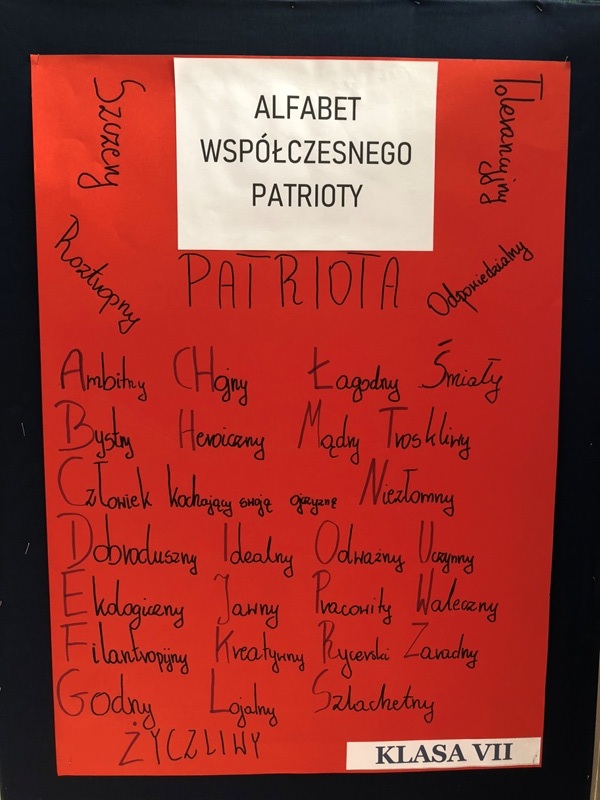 ALFABET
WSPÓŁCZESNEGO
PATRIOTY
Szczery
Tolerancyjny
Roztropny
PATRIOTA
Odpowiedzialny
Ambitny CHojny Łagodny Śmiały
Bystry Heroiczny Mądry Troskliwy
Człowiek kochający swoją ojczyznę Niezłomny
Dobroduszny Idealny Odważny Uczynny
Ekologiczny Jawny Pracowity Waleczny
Filantropijny Kreatywny Rycerski Zaradny
Godny Lojalny Szlachetny
ŻYCZLIWY
KLASA VII